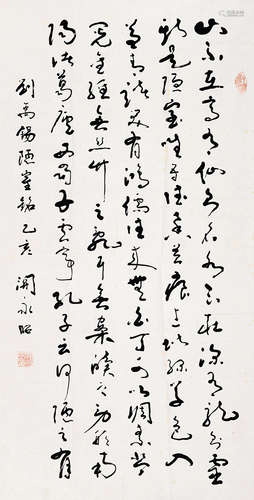 山不在高有仙則名水不在深有龍則靈
斯是陋室唯吾德馨苔痕上階綠草色入
簾青談笑有鴻儒往來無白丁可以調素琴
閱金經無絲竹之亂耳無案牘之勞形南
陽諸葛廬西蜀子雲亭孔子云何陋之有
劉禹錫陋室銘乙亥永昭